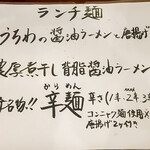 ランチ麺
うちわの醤油ラーメンと唐揚げ
煮干し背脂醤油ラーメン
名物!! 辛麺 辛さ1辛.2辛.3辛
かりめん
コンニャク麺使用
唐揚げ2ヶ付!!